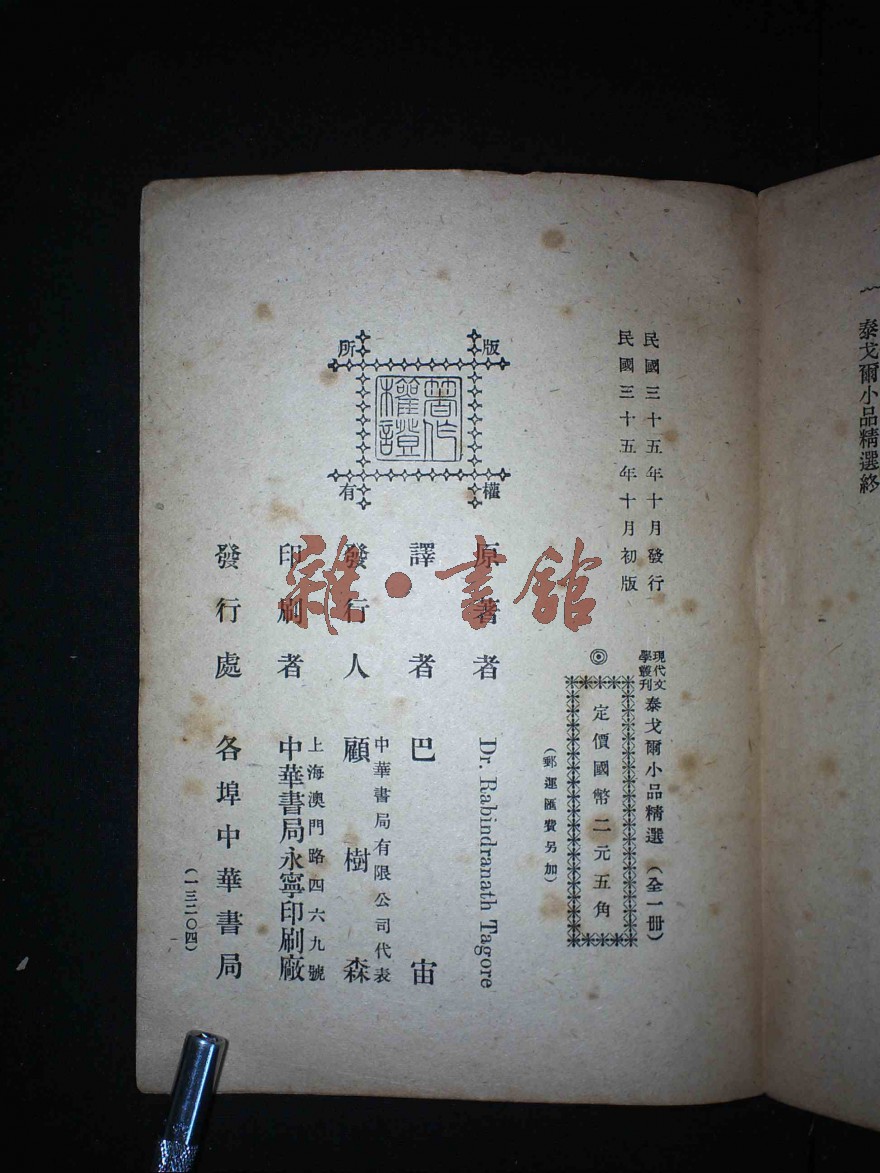 泰戈爾小品精選終
民國三十五年十月發行
民國三十五年十月初版
現代文學叢刊 泰戈爾小品精選（全一冊）
◎ 定價國幣二元五角
（郵運匯費另加）
版權所有
著作權證
原著者 Dr. Rabindranath Tagore
譯者 巴宙
中華書局有限公司代表
發行人 顧樹森
上海澳門路四六九號
印刷者 中華書局永寧印刷廠
發行處 各埠中華書局
（一三二〇四）
雜·書館